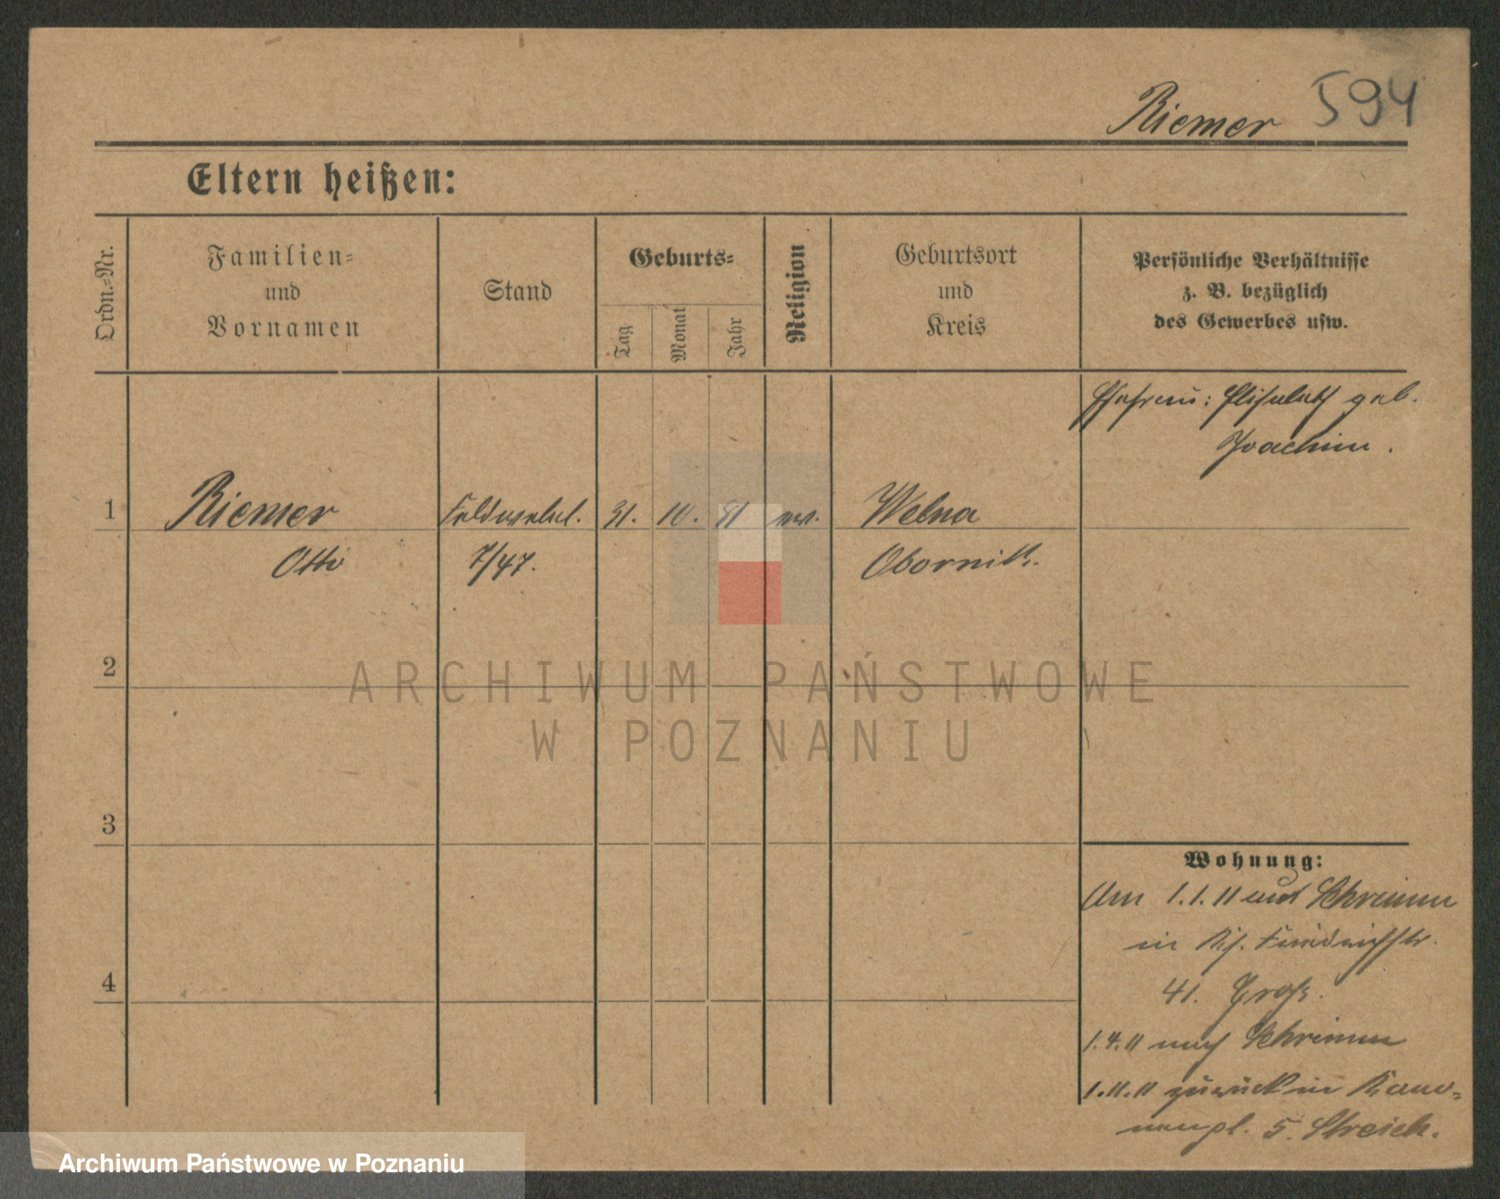 Riemer 594
Eltern heißen:
Ordn.=Nr.
Familien=
und
Vornamen
Stand
Geburts=
Tag
Monat
Jahr
Religion
Geburtsort
und
Kreis
Persönliche Verhältnisse
z. B. bezüglich
des Gewerbes usw.
Ehefrau: Elisabeth geb.
Joachim.
1 Riemer Feldwebel. 31. 10. 81 ev. Welna
Otto 7/47. Obornik.
2
3
4
Wohnung:
Am 1.1.11 aus Schrimm
in Friedrichstr.
41.
1.4.11 nach Schrimm
1.11.11 zurück in Kano=
nenpl. 5. Streich.
ARCHIWUM PAŃSTWOWE
W POZNANIU
Archiwum Państwowe w Poznaniu